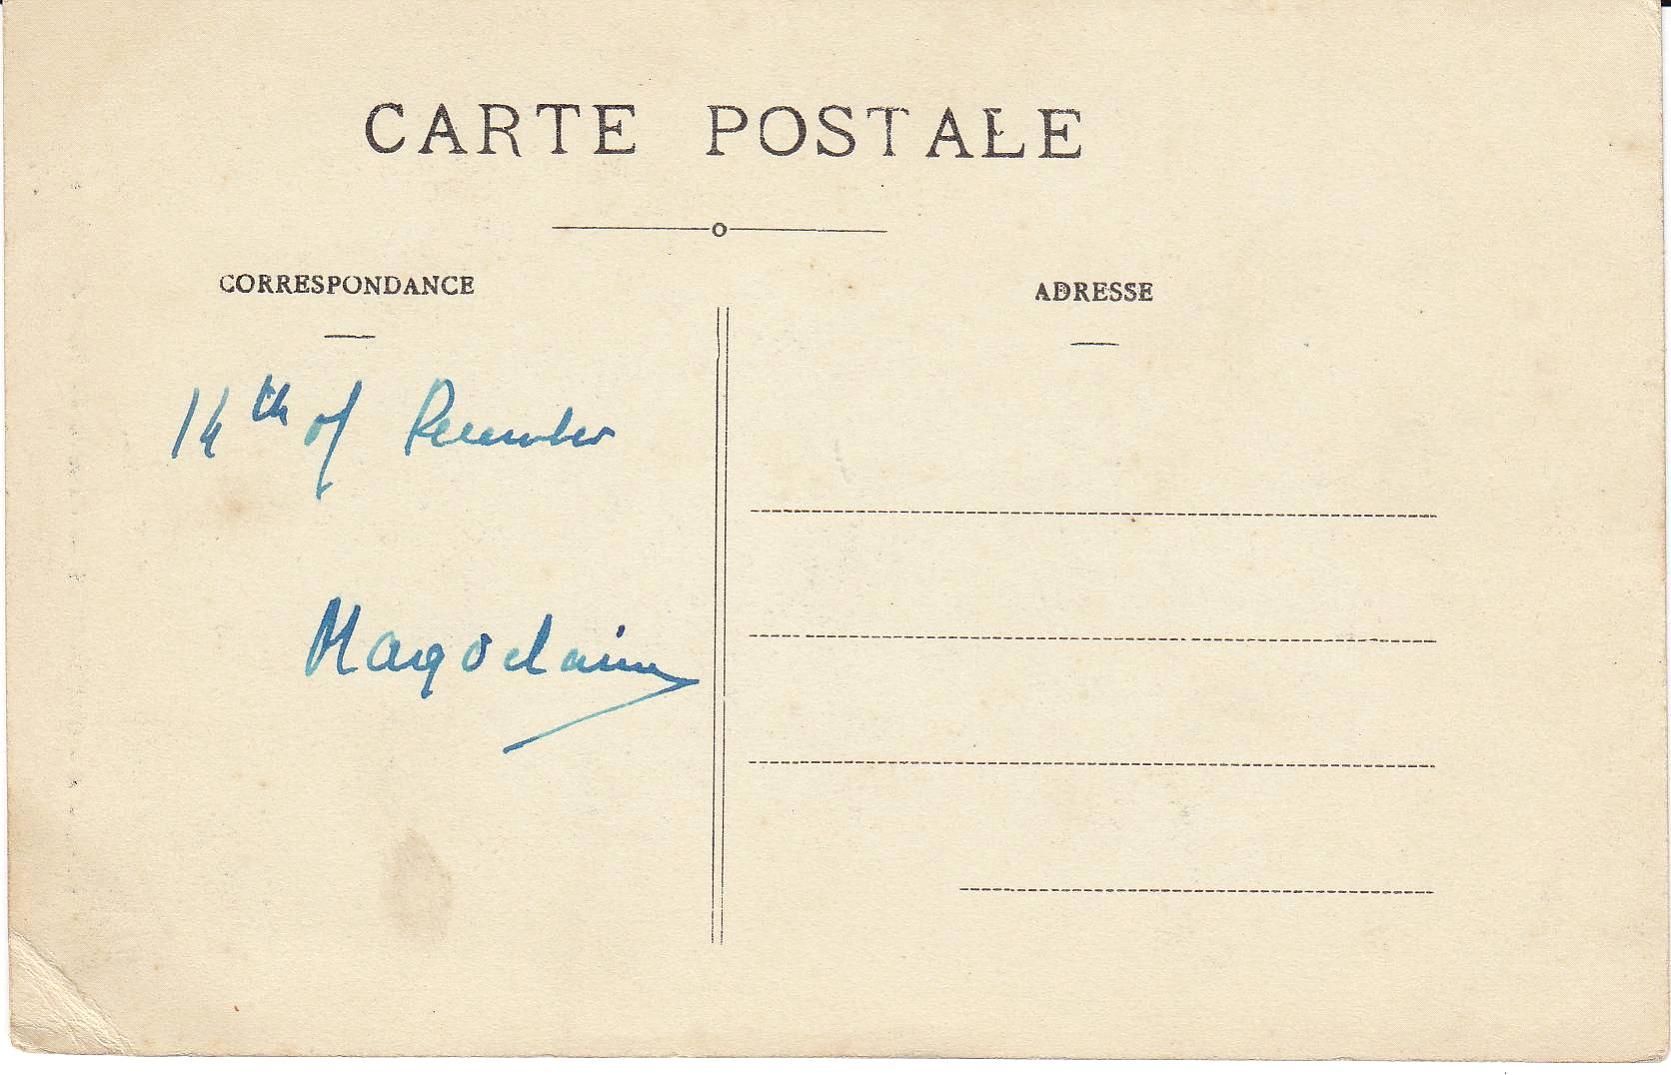 CARTE POSTALE
CORRESPONDANCE
ADRESSE
14th of December